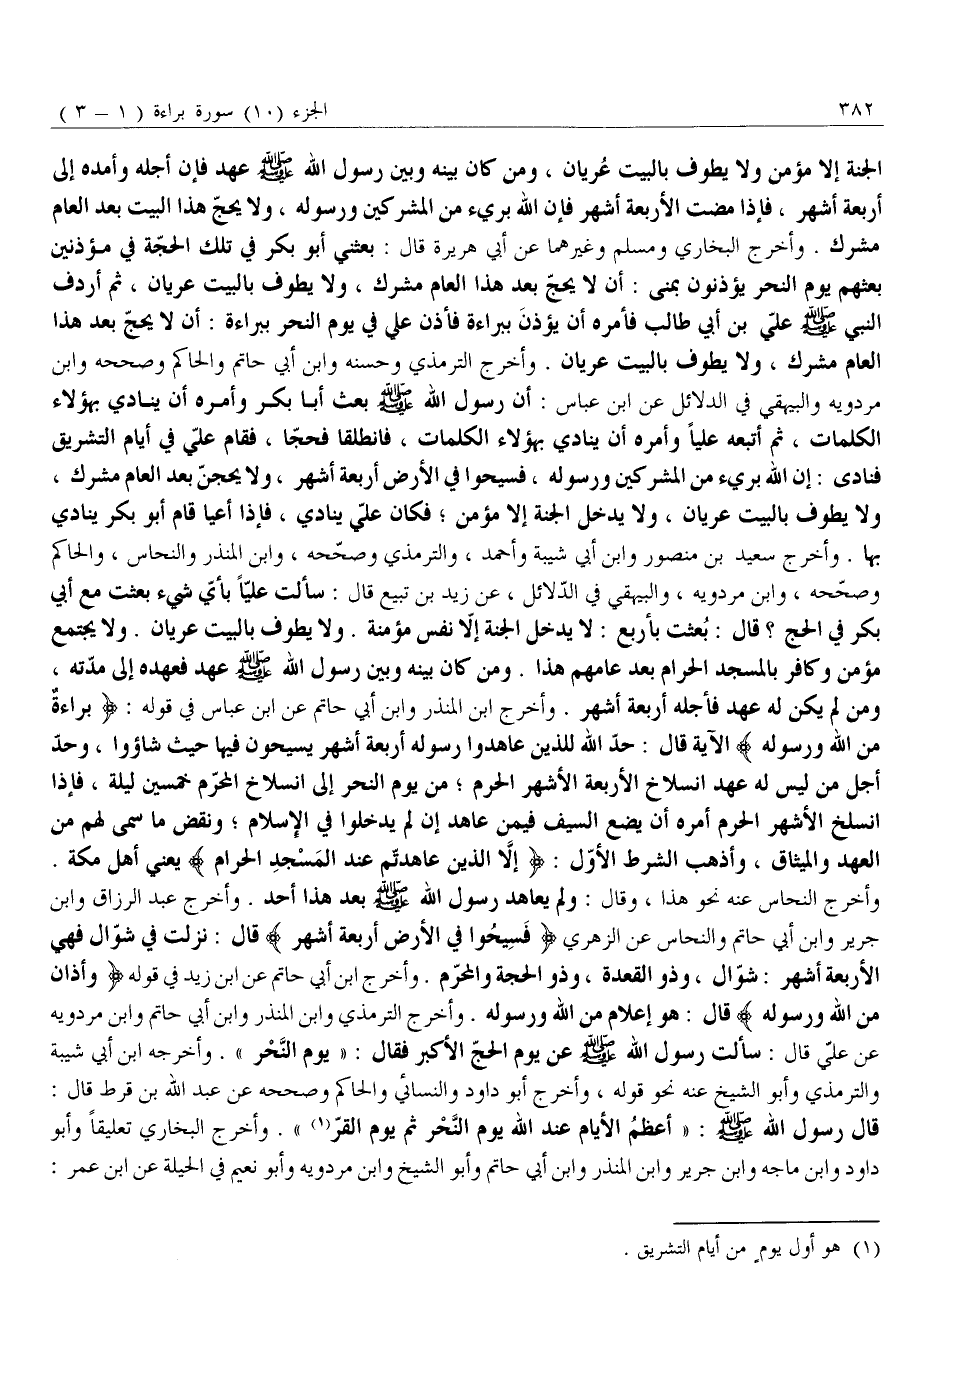 ٣٨٢
الجزء (١٠) سورة براءة ( ١ – ٣ )
الجنة إلا مؤمن ولا يطوف بالبيت عُريان ، ومن كان بينه وبين رسول الله ﷺ عهد فإن أجله وأمده إلى
أربعة أشهر ، فإذا مضت الأربعة أشهر فإن الله بريء من المشركين ورسوله ، ولا يحجّ هذا البيت بعد العام
مشرك . وأخرج البخاري ومسلم وغيرهما عن أبي هريرة قال : بعثني أبو بكر في تلك الحجّة في مؤذنين
بعثهم يوم النحر يؤذنون بمنى : أن لا يحجّ بعد هذا العام مشرك ، ولا يطوف بالبيت عريان ، ثم أردف
النبي ﷺ عليّ بن أبي طالب فأمره أن يؤذنَ ببراءة فأذن علي في يوم النحر ببراءة : أن لا يحجّ بعد هذا
العام مشرك ، ولا يطوف بالبيت عريان . وأخرج الترمذي وحسنه وابن أبي حاتم والحاكم وصححه وابن
مردويه والبيهقي في الدلائل عن ابن عباس : أن رسول الله ﷺ بعث أبا بكر وأمره أن ينادي بهؤلاء
الكلمات ، ثم أتبعه علياً وأمره أن ينادي بهؤلاء الكلمات ، فانطلقا فحجّا ، فقام عليّ في أيام التشريق
فنادى : إن الله بريء من المشركين ورسوله ، فسيحوا في الأرض أربعة أشهر ، ولا يحجنّ بعد العام مشرك ،
ولا يطوف بالبيت عريان ، ولا يدخل الجنة إلا مؤمن ؛ فكان عليّ ينادي ، فإذا أعيا قام أبو بكر ينادي
بها . وأخرج سعيد بن منصور وابن أبي شيبة وأحمد ، والترمذي وصحّحه ، وابن المنذر والنحاس ، والحاكم
وصحّحه ، وابن مردويه ، والبيهقي في الدّلائل ، عن زيد بن تبيع قال : سألت عليّاً بأيّ شيء بعثت مع أبي
بكر في الحج ؟ قال : بُعثت بأربع : لا يدخل الجنة إلّا نفس مؤمنة . ولا يطوف بالبيت عريان . ولا يجتمع
مؤمن وكافر بالمسجد الحرام بعد عامهم هذا . ومن كان بينه وبين رسول الله ﷺ عهد فعهده إلى مدّته ،
ومن لم يكن له عهد فأجله أربعة أشهر . وأخرج ابن المنذر وابن أبي حاتم عن ابن عباس في قوله : ﴿ براءةٌ
من الله ورسوله ﴾ الآية قال : حدّ الله للذين عاهدوا رسوله أربعة أشهر يسيحون فيها حيث شاؤوا ، وحدّ
أجل من ليس له عهد انسلاخ الأربعة الأشهر الحرم ؛ من يوم النحر إلى انسلاخ المحرّم خمسين ليلة ، فإذا
انسلخ الأشهر الحرم أمره أن يضع السيف فيمن عاهد إن لم يدخلوا في الإسلام ؛ ونقض ما سمى لهم من
العهد والميثاق ، وأذهب الشرط الأوّل : ﴿ إلَّا الذين عاهدتّم عند المَسْجدِ الحرام ﴾ يعني أهل مكة .
وأخرج النحاس عنه نحو هذا ، وقال : ولم يعاهد رسول الله ﷺ بعد هذا أحد . وأخرج عبد الرزاق وابن
جرير وابن أبي حاتم والنحاس عن الزهري ﴿ فَسِيحُوا في الأرض أربعة أشهر ﴾ قال : نزلت في شوّال فهي
الأربعة أشهر : شوّال ، وذو القعدة ، وذو الحجة والمحرّم . وأخرج ابن أبي حاتم عن ابن زيد في قوله ﴿ وأذان
من الله ورسوله ﴾ قال : هو إعلام من الله ورسوله . وأخرج الترمذي وابن المنذر وابن أبي حاتم وابن مردويه
عن عليّ قال : سألت رسول الله ﷺ عن يوم الحجّ الأكبر فقال : « يوم النَّحْر » . وأخرجه ابن أبي شيبة
والترمذي وأبو الشيخ عنه نحو قوله ، وأخرج أبو داود والنسائي والحاكم وصححه عن عبد الله بن قرط قال :
قال رسول الله ﷺ : « أعظمُ الأيام عند الله يوم النَّحْر ثم يوم القرّ(١) » . وأخرج البخاري تعليقاً وأبو
داود وابن ماجه وابن جرير وابن المنذر وابن أبي حاتم وأبو الشيخ وابن مردويه وأبو نعيم في الحيلة عن ابن عمر :
(١) هو أول يومٍ من أيام التشريق .